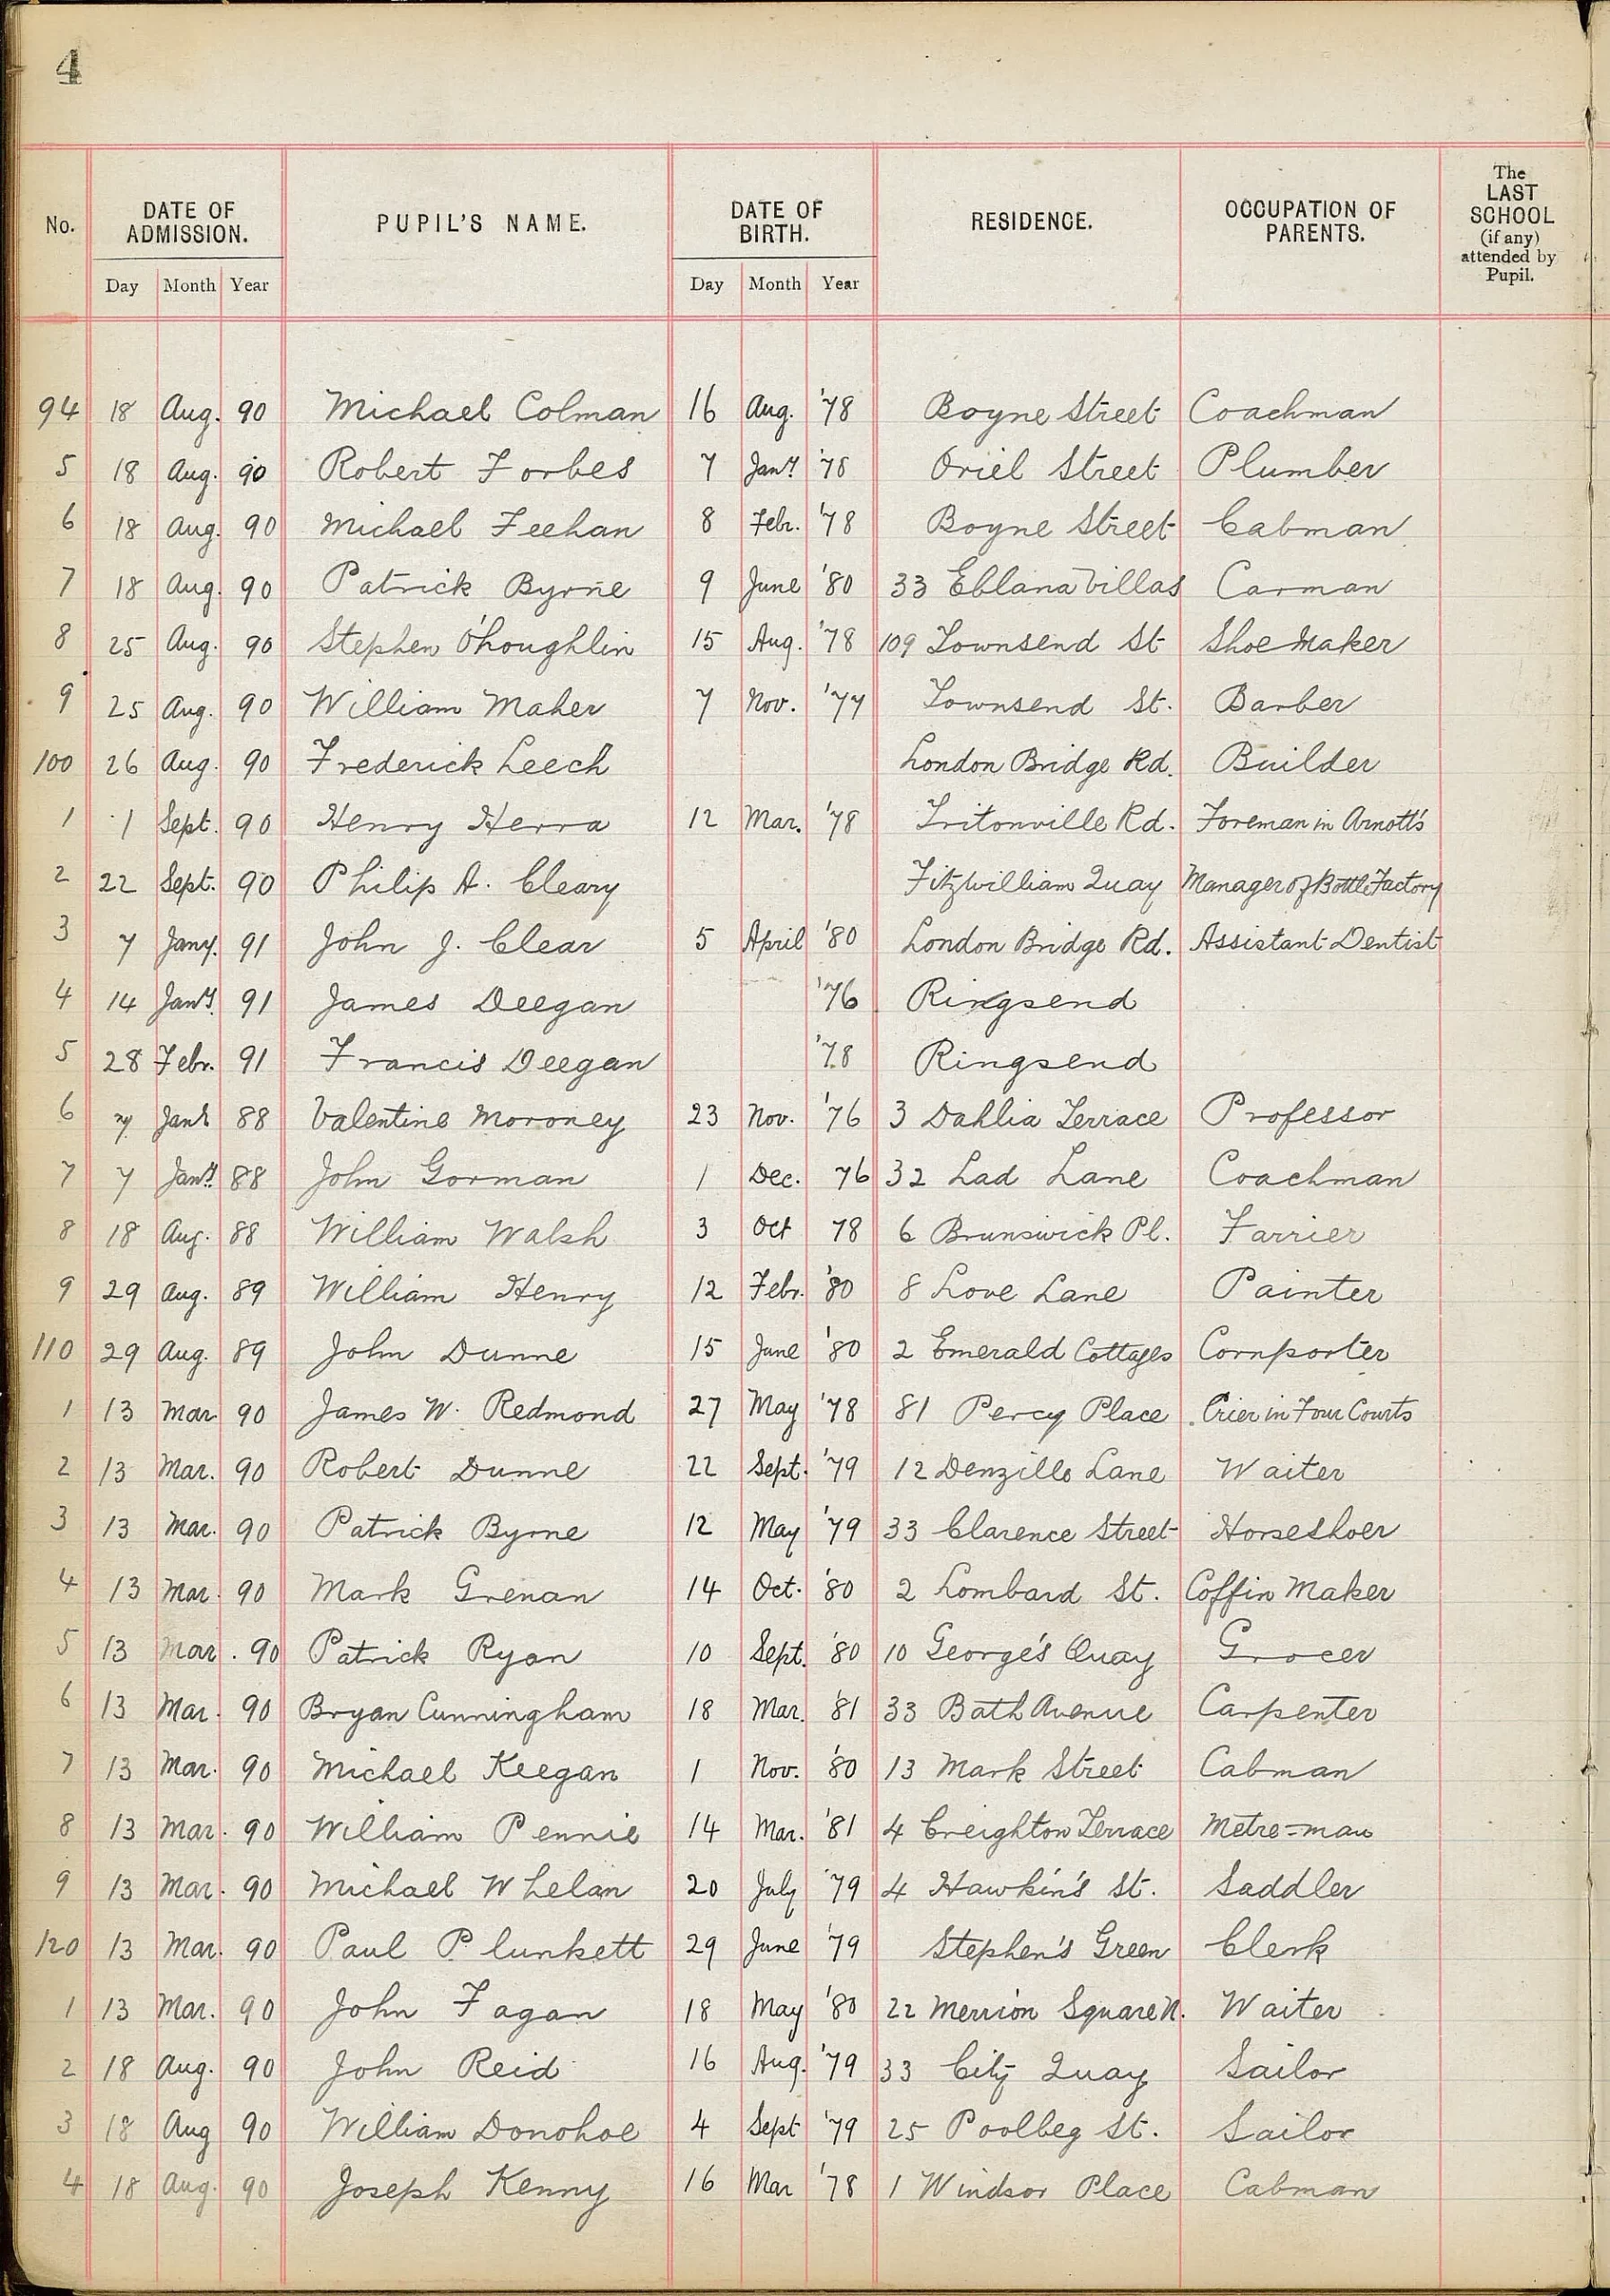 4
No. DATE OF ADMISSION. PUPIL'S NAME. DATE OF BIRTH. RESIDENCE. OCCUPATION OF PARENTS. The LAST SCHOOL (if any) attended by Pupil.
Day Month Year Day Month Year
94 18 Aug. 90 Michael Colman 16 Aug. '78 Boyne Street Coachman
5 18 Aug. 90 Robert Forbes 7 Jany '78 Oriel Street Plumber
6 18 Aug. 90 Michael Feehan 8 Febr. '78 Boyne Street Cabman
7 18 Aug. 90 Patrick Byrne 9 June '80 33 Eblana Villas Carman
8 25 Aug. 90 Stephen O'Loughlin 15 Aug. '78 109 Townsend St Shoe Maker
9 25 Aug. 90 William Maher 7 Nov. '77 Townsend St. Barber
100 26 Aug. 90 Frederick Leech London Bridge Rd. Builder
1 1 Sept. 90 Henry Herra 12 Mar. '78 Tritonville Rd. Foreman in Arnott's
2 22 Sept. 90 Philip A. Cleary Fitzwilliam Quay Manager of Bottle Factory
3 7 Jany. 91 John J. Clear 5 April '80 London Bridge Rd. Assistant Dentist
4 14 Jany. 91 James Deegan '76 Ringsend
5 28 Febr. 91 Francis Deegan '78 Ringsend
6 7 Jany 88 Valentine Moroney 23 Nov. '76 3 Dahlia Terrace Professor
7 7 Jany. 88 John Gorman 1 Dec. 76 32 Lad Lane Coachman
8 18 Aug. 88 William Walsh 3 Oct 78 6 Brunswick Pl. Farrier
9 29 Aug. 89 William Henry 12 Febr. '80 8 Love Lane Painter
110 29 Aug. 89 John Dunne 15 June '80 2 Emerald Cottages Cornporter
1 13 Mar 90 James W. Redmond 27 May '78 81 Percy Place Crier in Four Courts
2 13 Mar. 90 Robert Dunne 22 Sept. '79 12 Denzille Lane Waiter
3 13 Mar. 90 Patrick Byrne 12 May '79 33 Clarence Street Horseshoer
4 13 Mar. 90 Mark Grenan 14 Oct. '80 2 Lombard St. Coffin Maker
5 13 Mar. 90 Patrick Ryan 10 Sept. '80 10 George's Quay Grocer
6 13 Mar. 90 Bryan Cunningham 18 Mar. '81 33 Bath Avenue Carpenter
7 13 Mar. 90 Michael Keegan 1 Nov. '80 13 Mark Street Cabman
8 13 Mar. 90 William Pennie 14 Mar. '81 4 Creighton Terrace Metre=man
9 13 Mar. 90 Michael Whelan 20 July '79 4 Hawkin's St. Saddler
120 13 Mar. 90 Paul Plunkett 29 June '79 Stephen's Green Clerk
1 13 Mar. 90 John Fagan 18 May '80 22 Merrion Square N. Waiter
2 18 Aug. 90 John Reid 16 Aug. '79 33 City Quay Sailor
3 18 Aug 90 William Donohoe 4 Sept '79 25 Poolbeg St. Sailor
4 18 Aug. 90 Joseph Kenny 16 Mar '78 1 Windsor Place Cabman